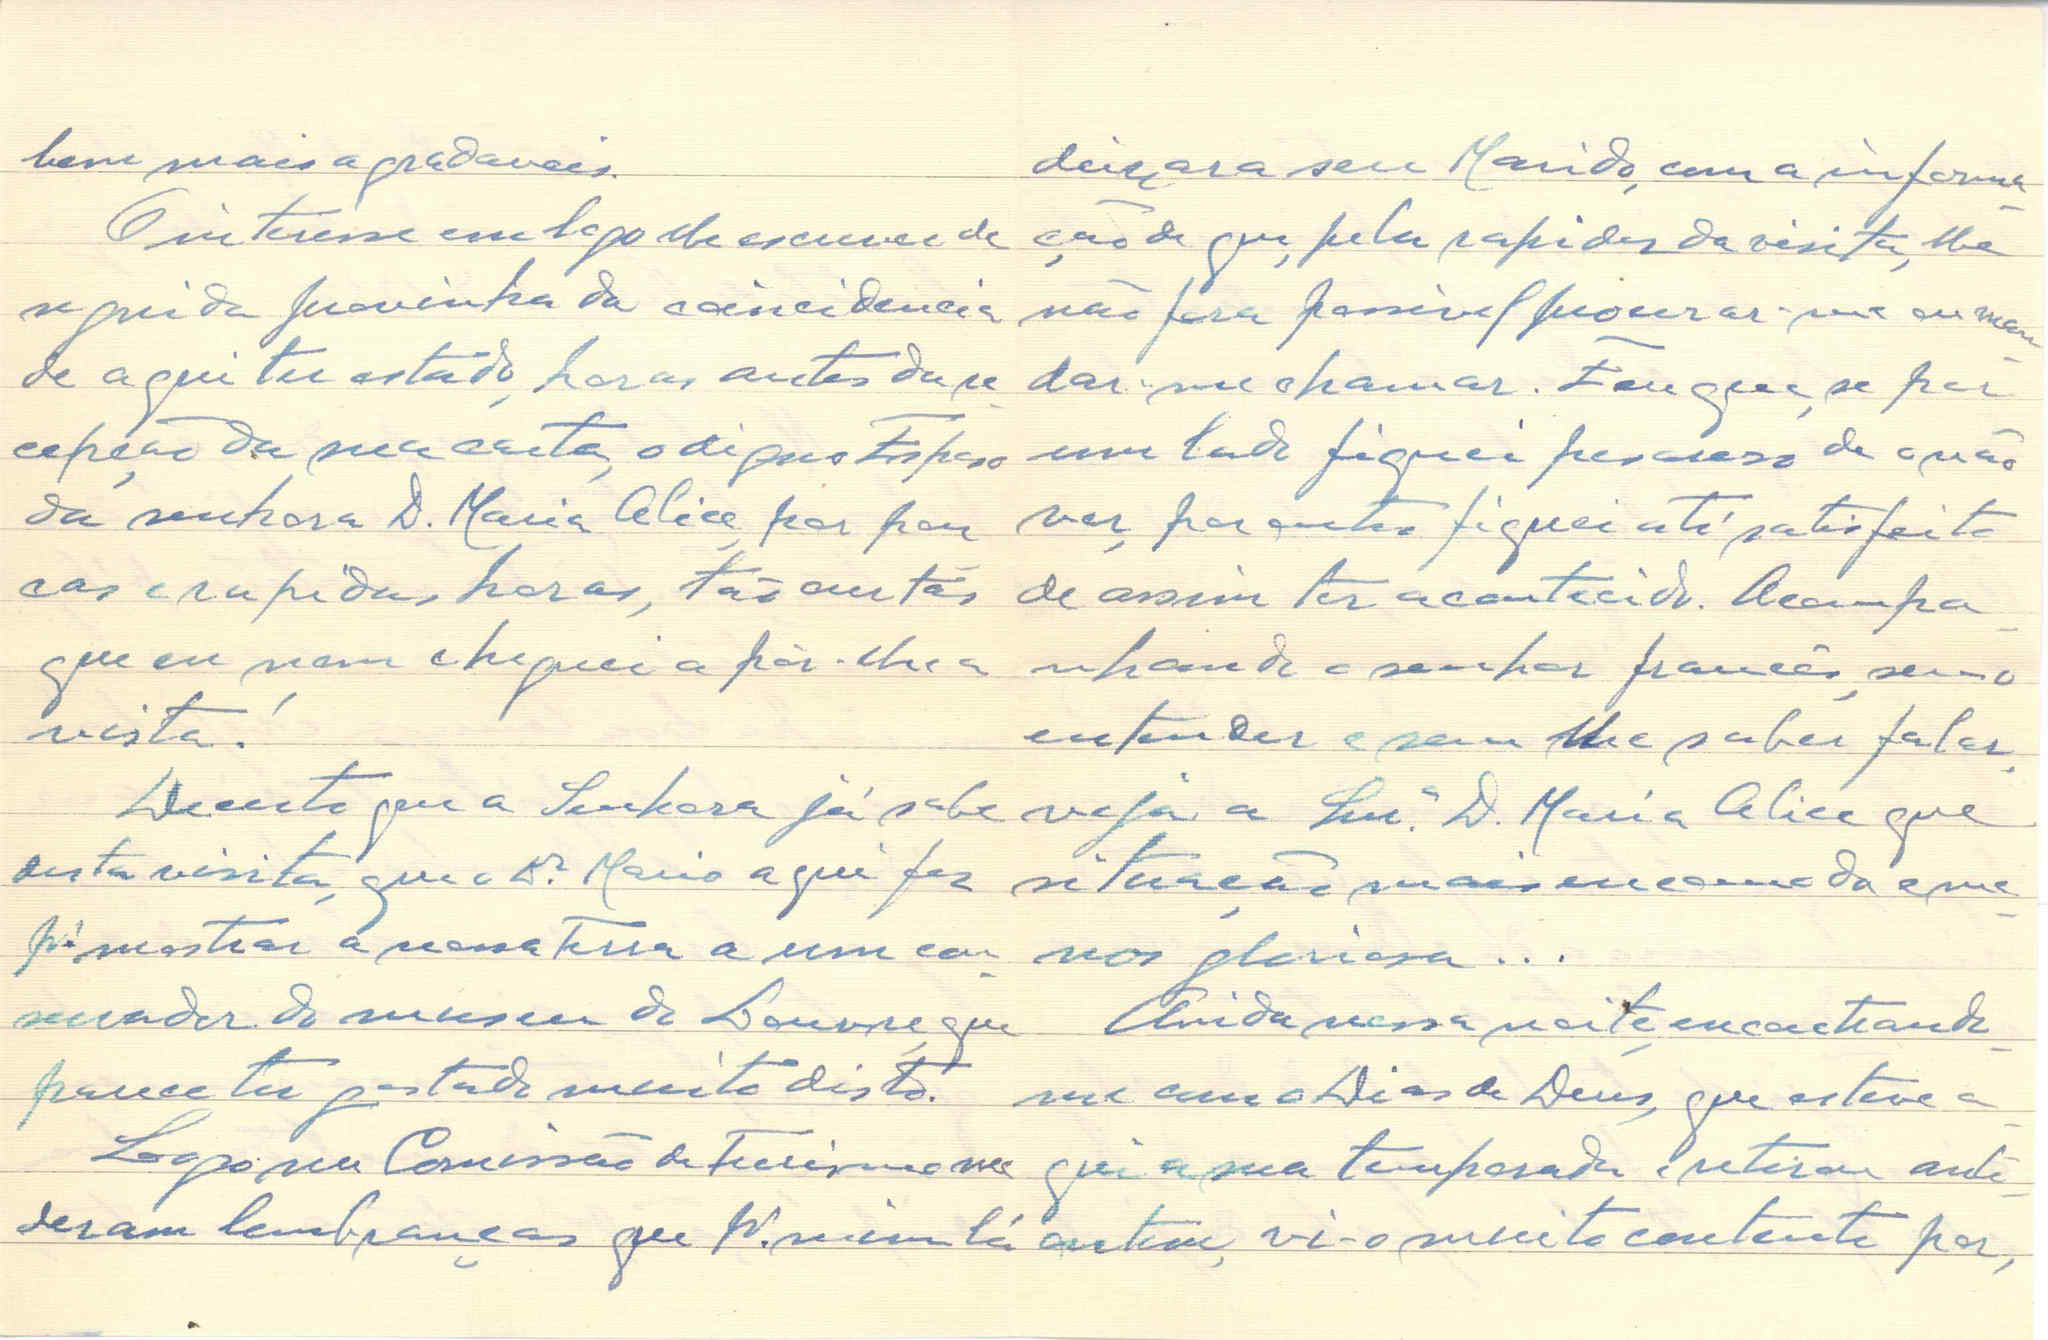 bem mais agradaveis.
O interesse em logo lhe escrever de
seguida provinha da coincidencia
de aqui ter estado, horas antes da re-
cepção da sua carta, o digno Esposo
da senhora D. Maria Alice, por pou
cas e rapidas horas, tão curtas
que eu nem cheguei a pôr-lhe a
vista!
Decerto que a Senhora já sabe
desta visita, que o Dr. Mario aqui fez
pª mostrar a nossa Terra a um con-
servador do museu do Louvre, que
parece ter gostado muito disto.
Logo na Comissão de Turismo me
deram lembranças que pª. mim lá
deixara seu Marido, com a informa-
ção de que, pela rapidez da visita, lhe
não fora possivel procurar-me ou man-
dar-me chamar. E eu que, se por
um lado fiquei pesaroso de o não
ver, por outro fiquei até satisfeito
de assim ter acontecido. Acompa-
nhando o senhor francês, sem o
entender e sem lhe saber falar,
veja a Snr.ª D. Maria Alice que
situação mais encomoda e me-
nos gloriosa...
Ainda nessa noite, encontrando-
me com o Dias de Deus, que esteve a-
qui a sua temporada e retirou ante-
ontem, vi-o muito contente por,